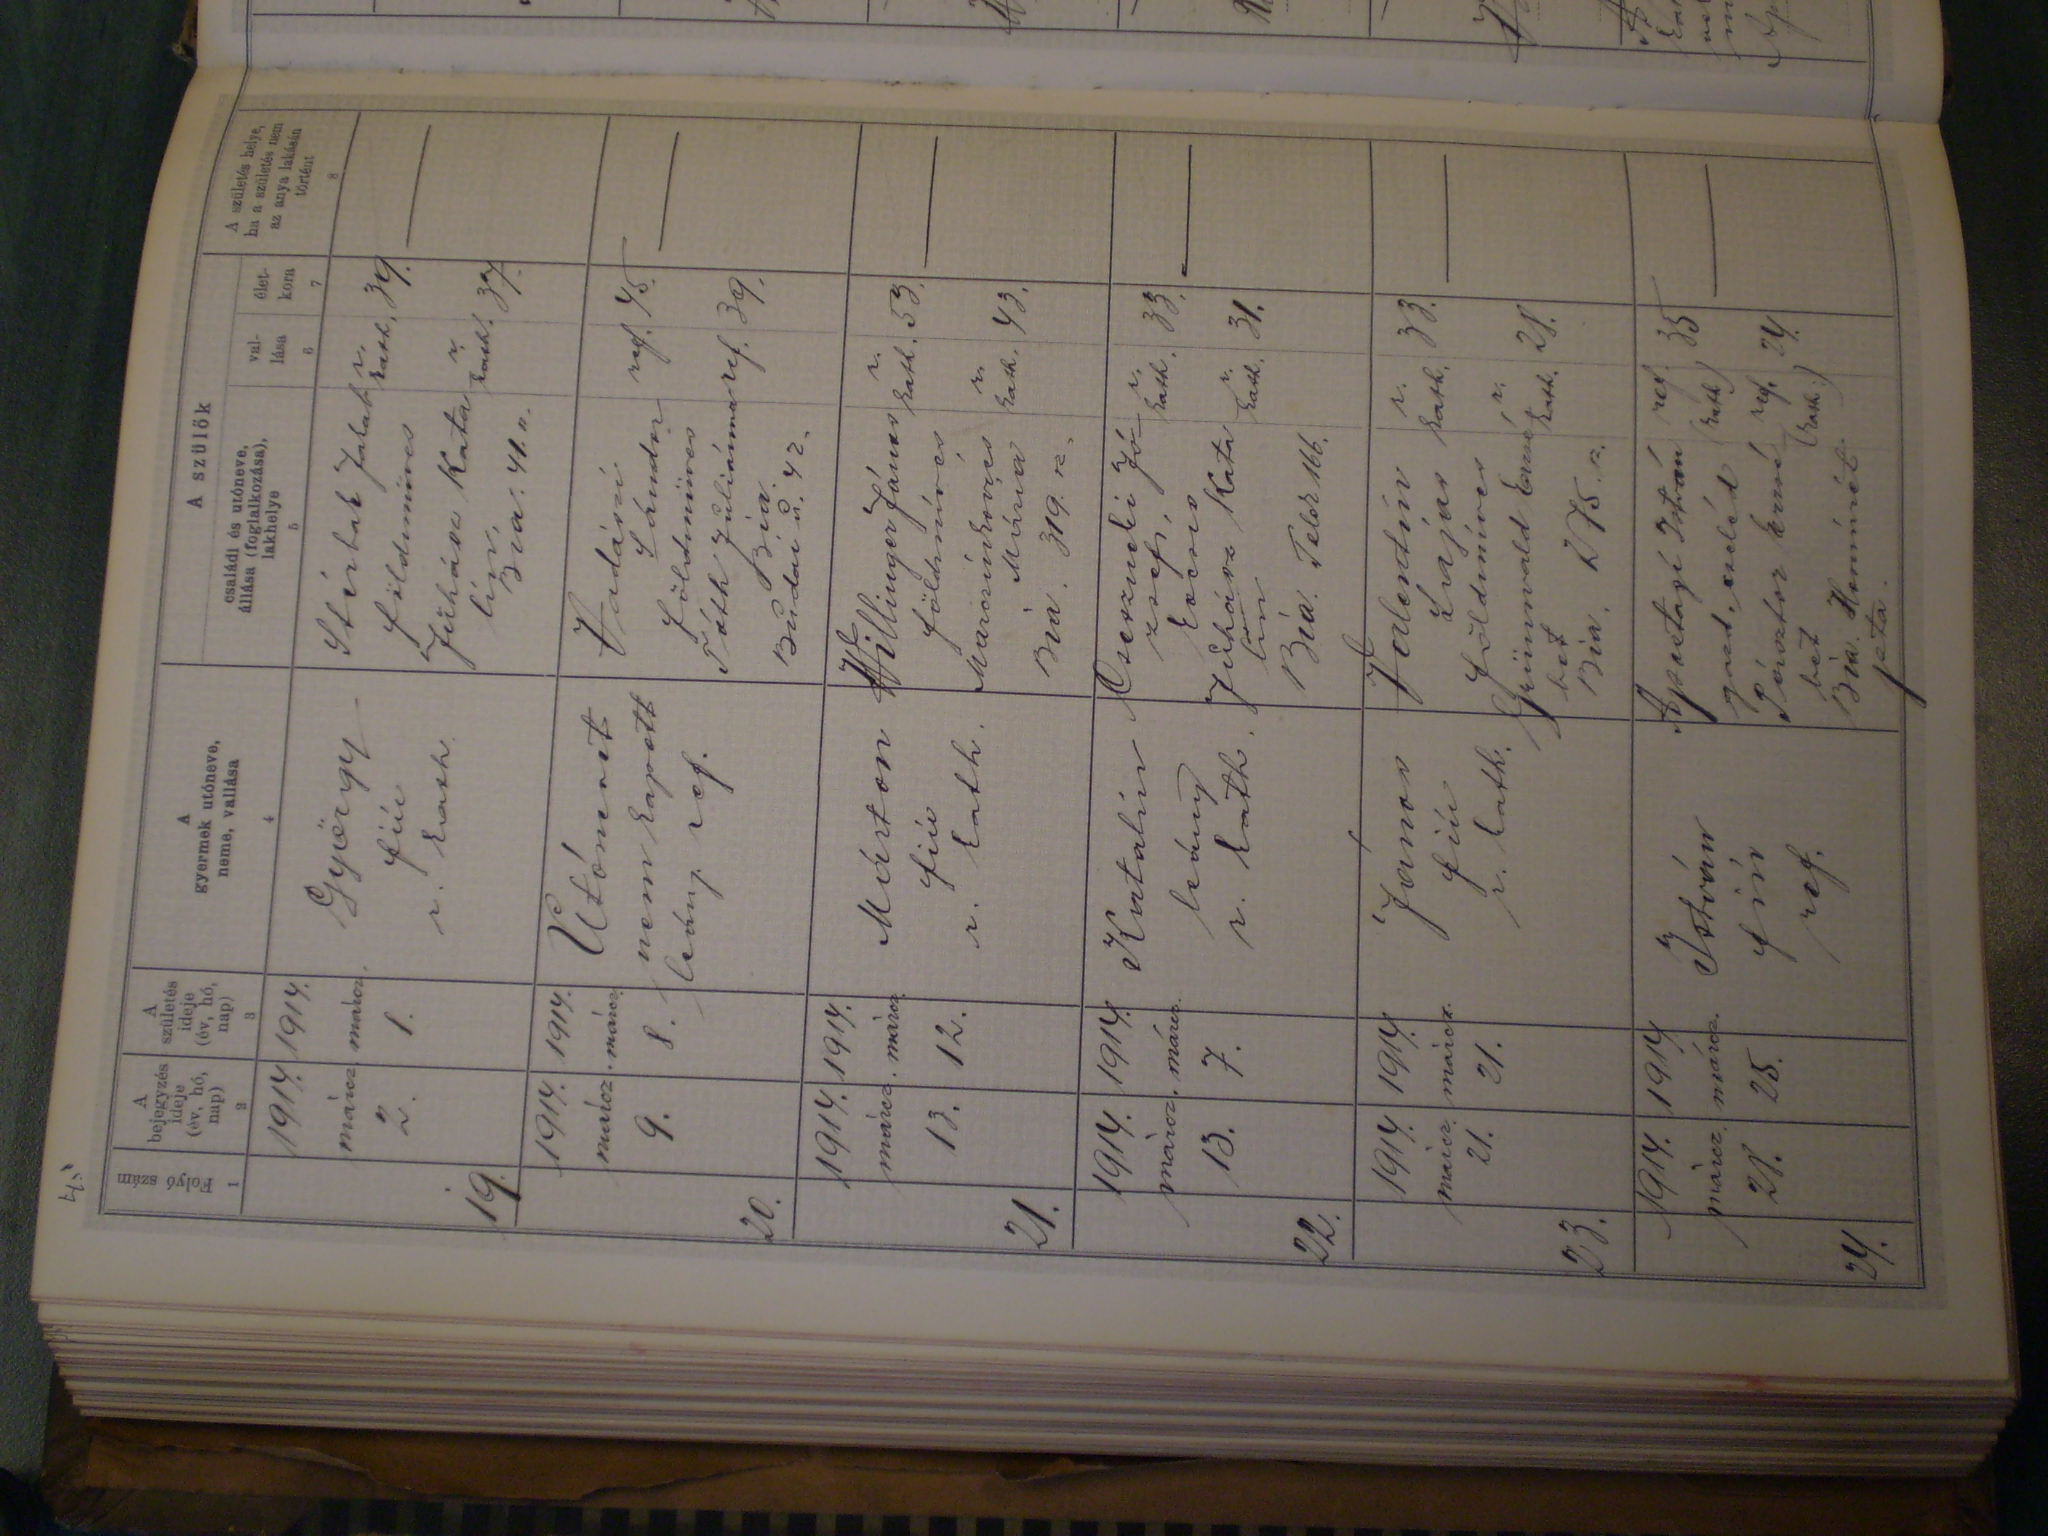 A szülők
Folyó szám
A bejegyzés ideje (év, hó, nap)
A születés ideje (év, hó, nap)
A gyermek utóneve, neme, vallása
családi és utóneve, állása (foglalkozása), lakhelye
val- lása
élet- kora
A születés helye, ha a születés nem az anya lakásán történt
1
2
3
4
5
6
7
8
19.
1914. márcz. 2.
1914. márcz. 1.
György
fiú
r. kath.
Jakab
földmíves
Juhász Kata
lin
Bia. 41.
r. kath. 39.
r. kath. 37.
20.
1914. márcz. 9.
1914. márcz. 8.
Utónevet
nem kapott
leány. ref.
Vadáni
Sándor
földmíves
Tóth Juliánna
Bia.
Budai u. 42.
ref. 45
ref. 39.
21.
1914. márcz. 13.
1914. márcz. 12.
Márton
fiú
r. kath.
Willinger János
földmíves
Marczinkovics
Mária
Bia. 319.
r. kath. 53.
r. kath. 43.
22.
1914. márcz. 13.
1914. márcz. 7.
Katalin
leány
r. kath.
Cserezneki Jó
zsef,
kovács
Juhász Kata
lin
Bia. Telek 166.
r. kath. 33.
r. kath. 31.
23.
1914. márcz. 21.
1914. márcz. 21.
János
fiú
r. kath.
Valentin
Lajos
földmíves
Grünwald Erzsé
bet
Bia. 275.
r. kath. 33.
r. kath. 28.
24.
1914. márcz. 28.
1914 márcz. 25.
István
fiú
ref.
Apostagi István
gazd. cseléd
Pásztor Erzsé
bet
Bia. Herminét
pta.
ref. (kath.) 35
ref. (kath.) 24.